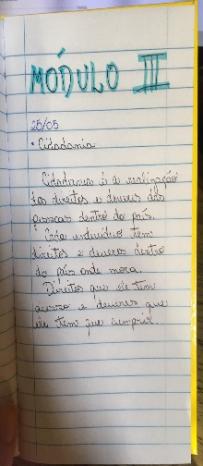 MÓDULO III
25/05
• Cidadania
Cidadania é a realização
dos direitos e deveres das
pessoas dentro do país.
Cada indivíduo tem
direitos e deveres dentro
do país onde mora.
Direitos que ele tem
acesso e deveres que
ele tem que cumprir.